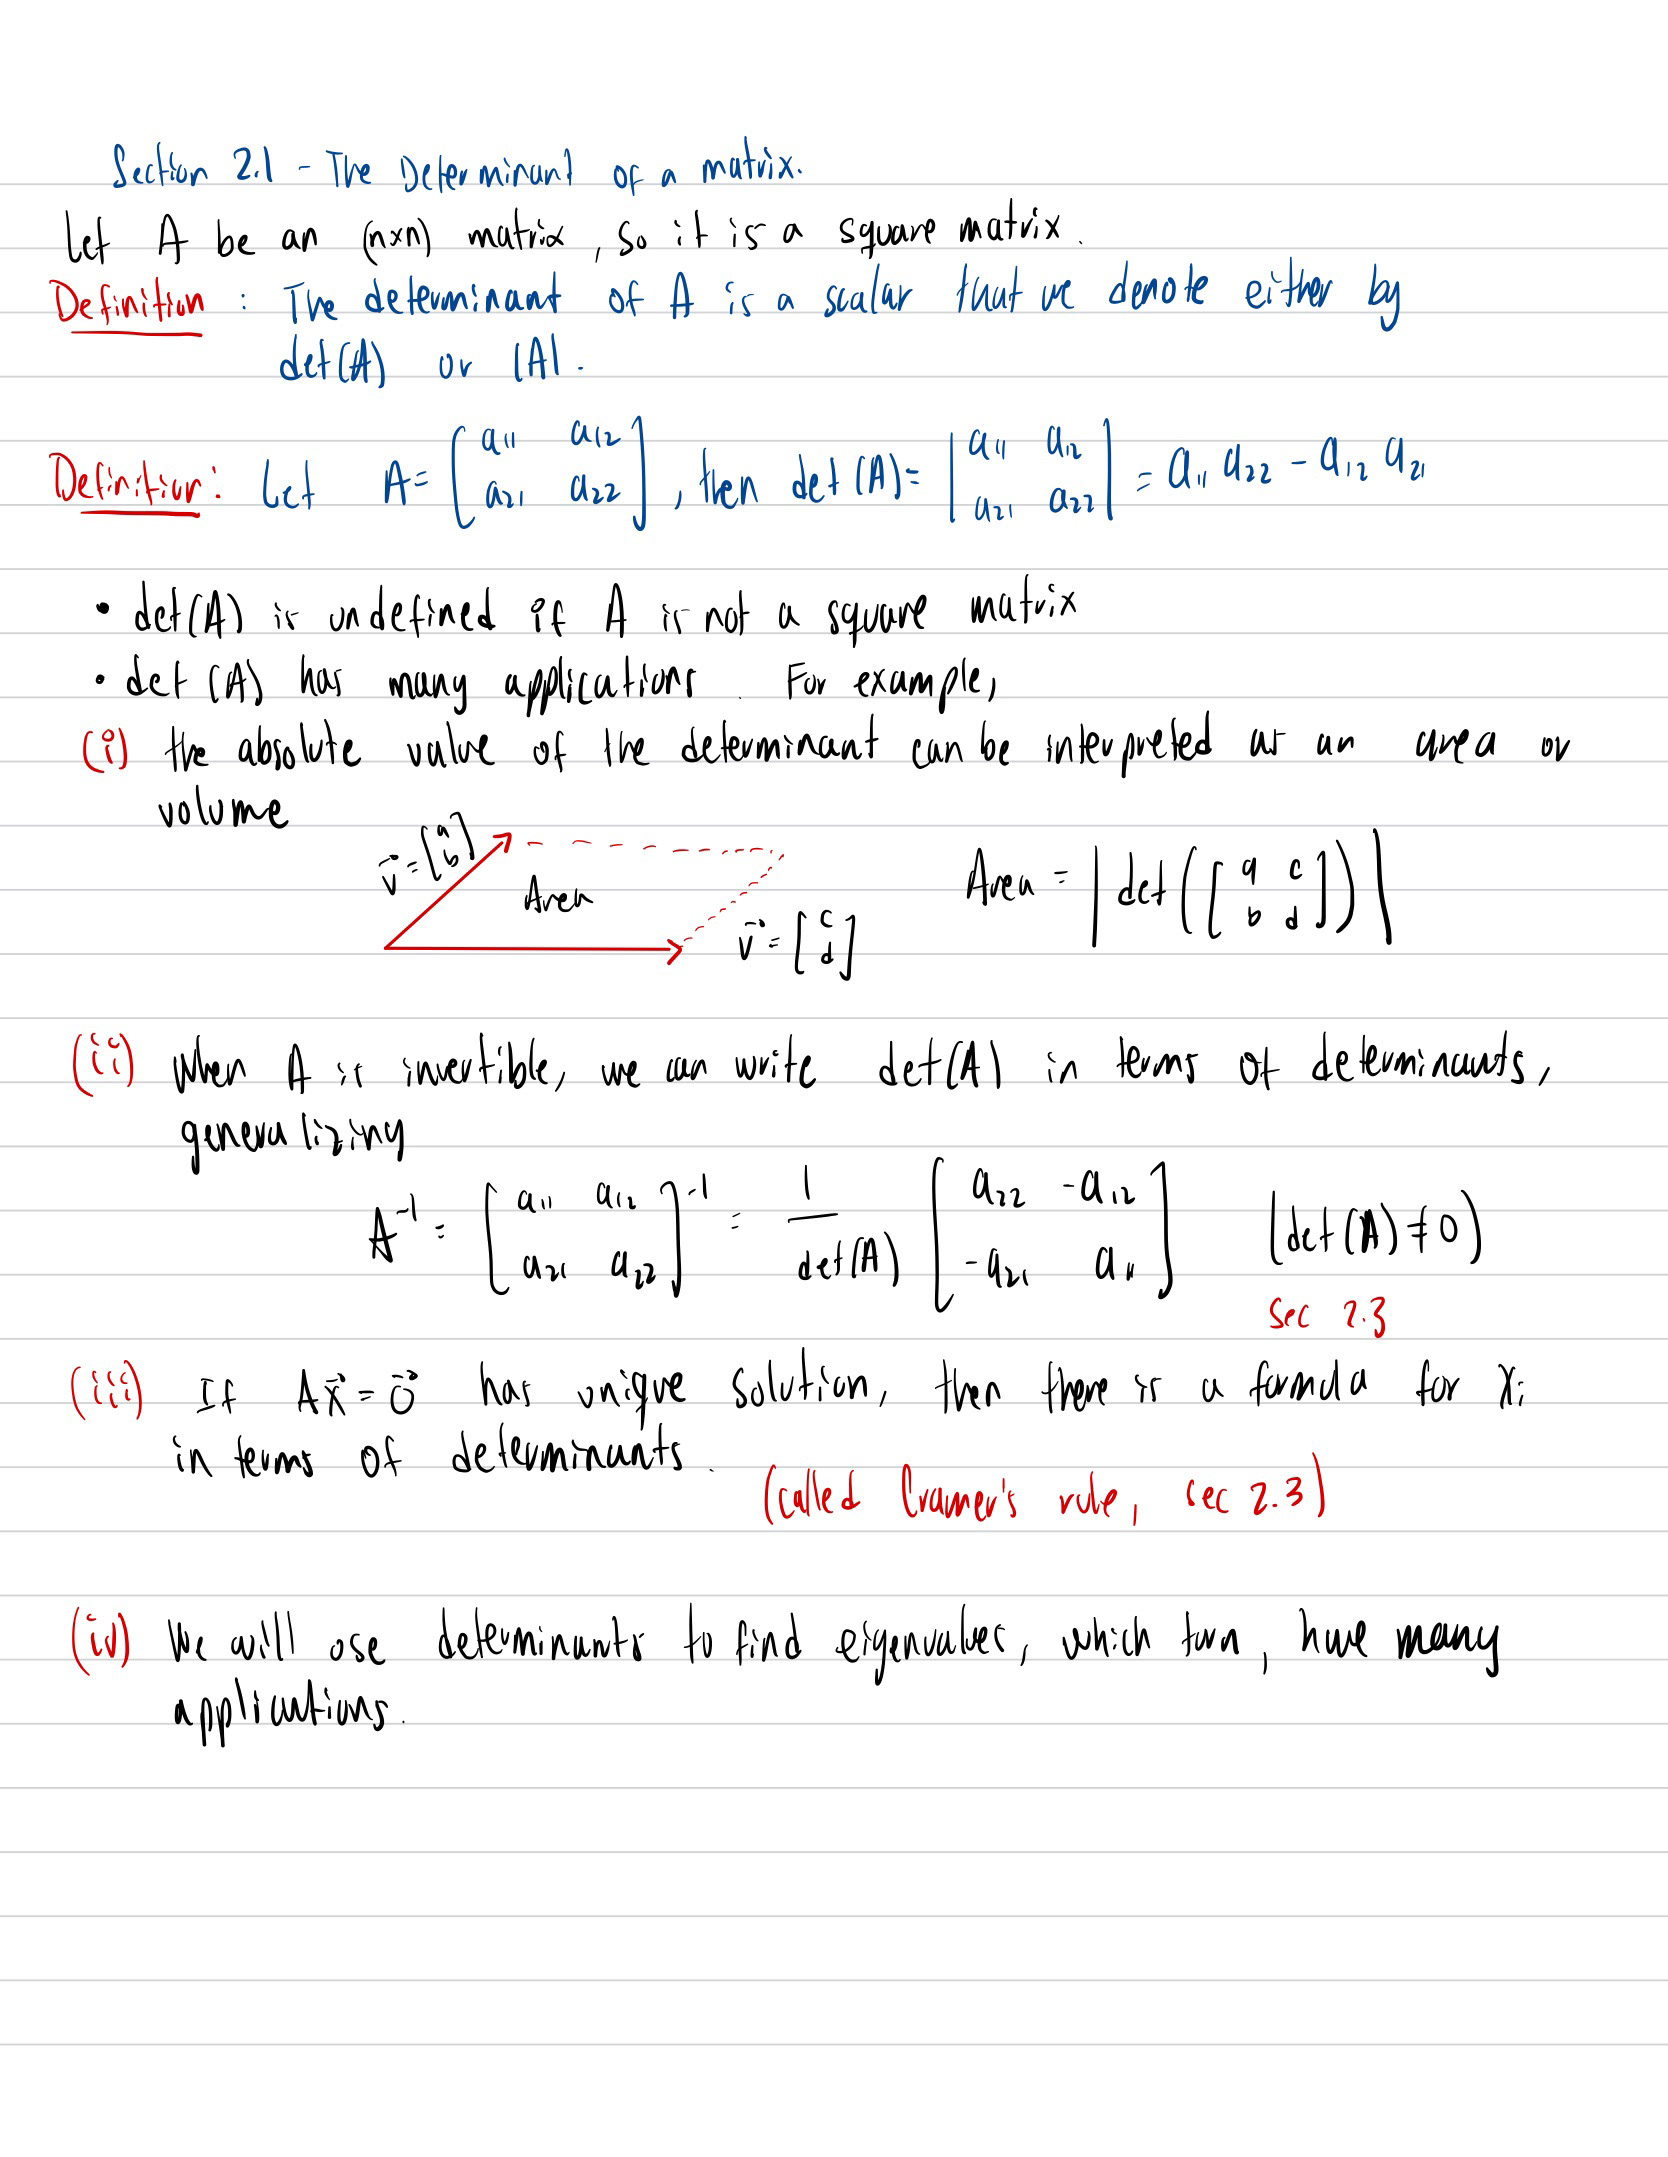 Section 2.1 - The Determinant of a matrix.
Let A be an (n×n) matrix, so it is a square matrix.
Definition : The determinant of A is a scalar that we denote either by
det(A) or |A|.
Definition: Let A = [a₁₁ a₁₂; a₂₁ a₂₂], then det(A) = |a₁₁ a₁₂; a₂₁ a₂₂| = a₁₁ a₂₂ - a₁₂ a₂₁
• det(A) is undefined if A is not a square matrix
• det (A) has many applications. For example,
(i) the absolute value of the determinant can be interpreted as an area or
volume
v⃗ = [a; b]
Area
v⃗ = [c; d]
Area = |det([a c; b d])|
(ii) when A is invertible, we can write det(A) in terms of determinants,
generalizing
A⁻¹ = [a₁₁ a₁₂; a₂₁ a₂₂]⁻¹ = 1/det(A) [a₂₂ -a₁₂; -a₂₁ a₁₁] (det(A) ≠ 0)
Sec 2.3
(iii) If Ax⃗ = 0⃗ has unique solution, then there is a formula for xᵢ
in terms of determinants.
(called Cramer's rule, sec 2.3)
(iv) We will use determinants to find eigenvalues, which turn, have many
applications.